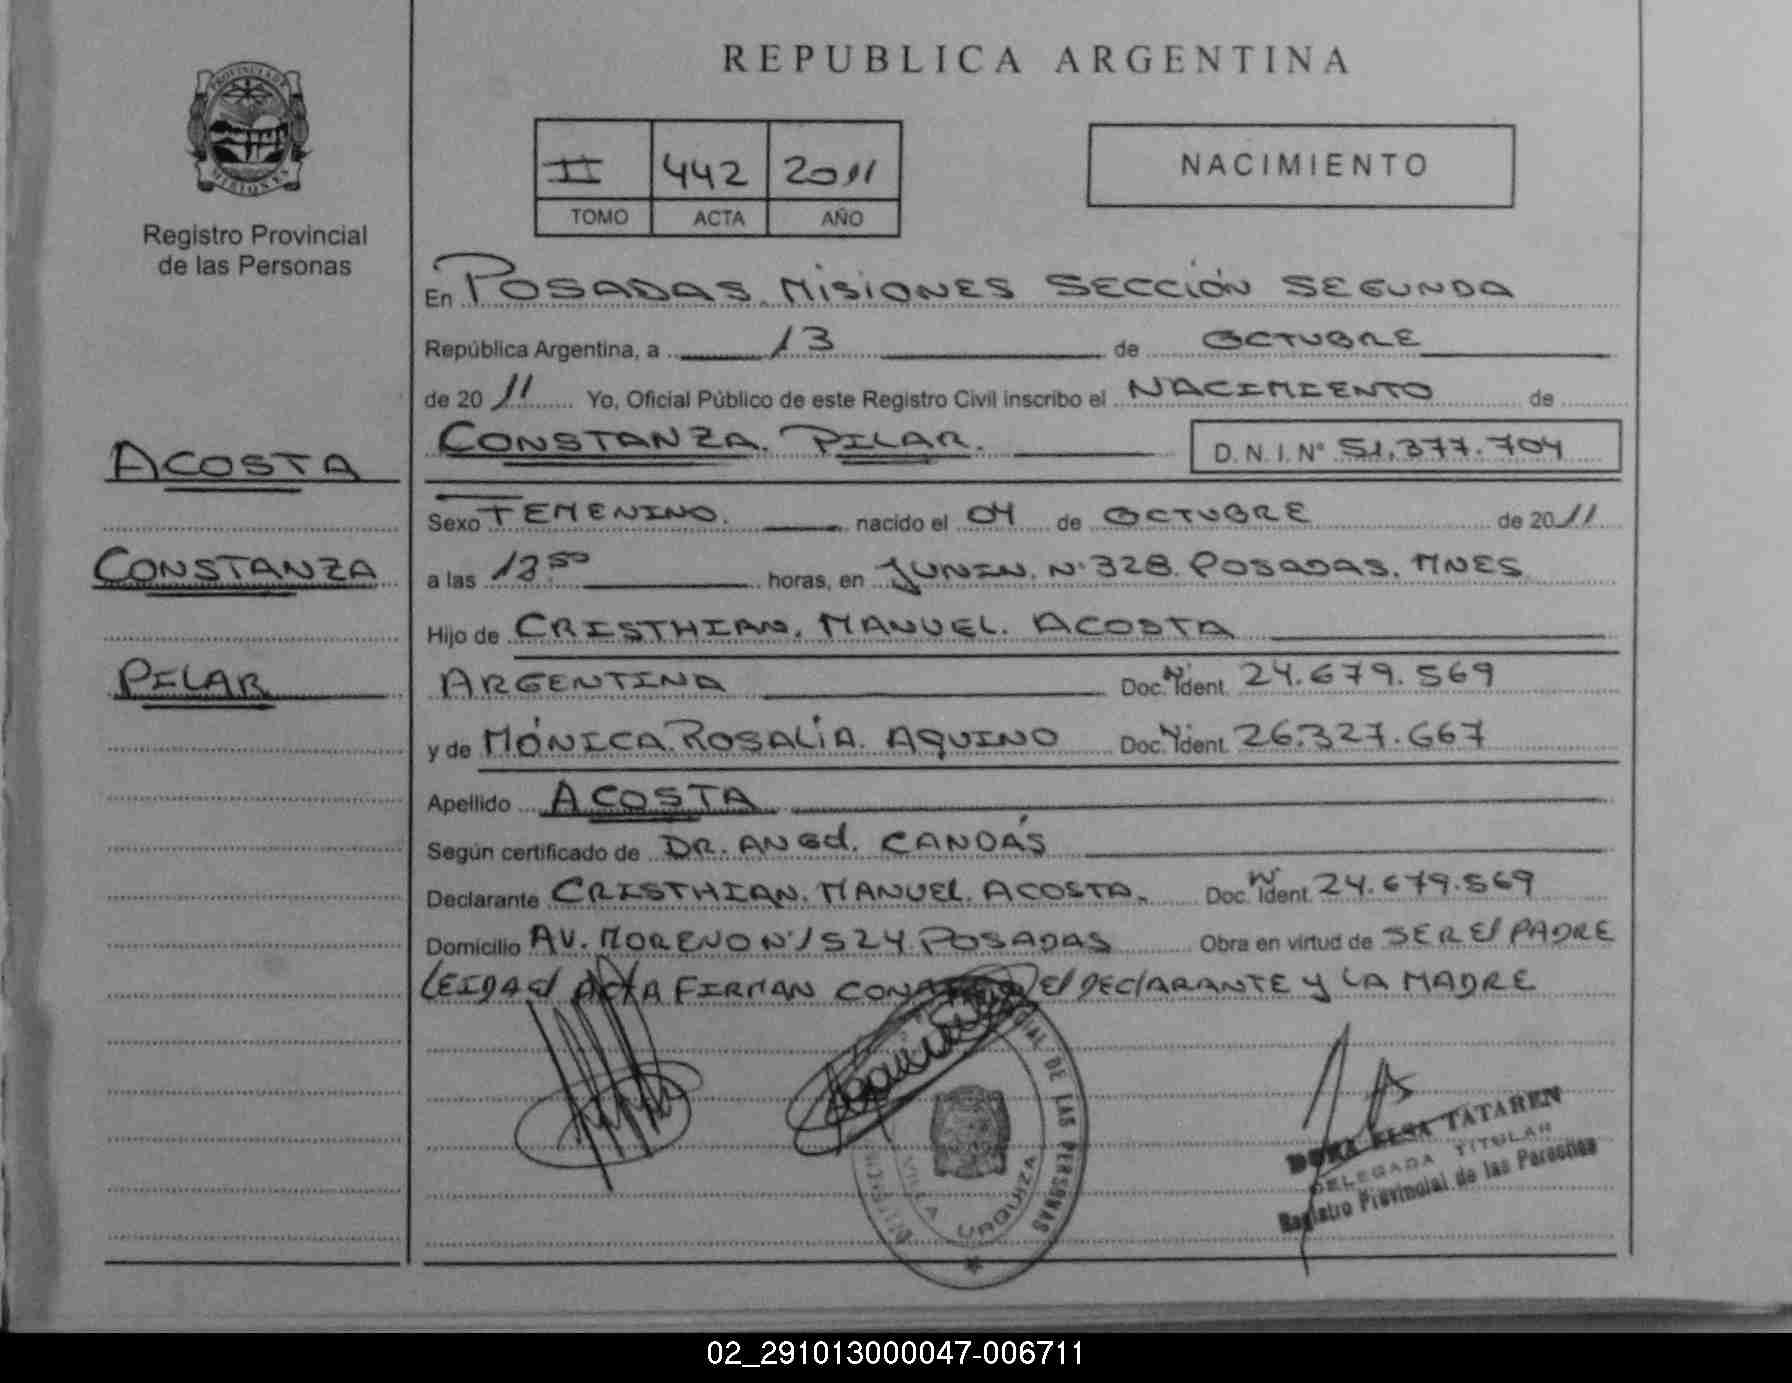 REPUBLICA ARGENTINA
PROVINCIA DE
MISIONES
Registro Provincial
de las Personas
II 442 2011
TOMO ACTA AÑO
NACIMIENTO
En POSADAS. MISIONES SECCIÓN SEGUNDA
República Argentina, a 13 de OCTUBRE
de 2011 Yo, Oficial Público de este Registro Civil inscribo el NACIMIENTO de
ACOSTA
CONSTANZA. PILAR. D.N.I. Nº 51.377.704
Sexo FEMENINO. nacido el 04 de OCTUBRE de 2011
CONSTANZA
a las horas, en JUNIN. Nº 328. POSADAS. MNES
Hijo de CRISTHIAN. MANUEL. ACOSTA
PILAR
ARGENTINA Doc. Nº Ident. 24.679.569
y de MÓNICA. ROSALÍA. AQUINO Doc. Nº Ident. 26.327.667
Apellido ACOSTA
Según certificado de DR. ANGEL. CANDÁS
Declarante CRISTHIAN. MANUEL. ACOSTA. Doc. Nº Ident. 24.679.569
Domicilio AV. MORENO Nº 1524. POSADAS Obra en virtud de SER El PADRE
LEIDA El ACTA FIRMAN El DEClARANTE Y LA MADRE
DE LAS PERSONAS
VILLA URQUIZA
DORA ELSA TATAREN
DELEGADA TITULAR
Registro Provincial de las Personas
02_291013000047-006711